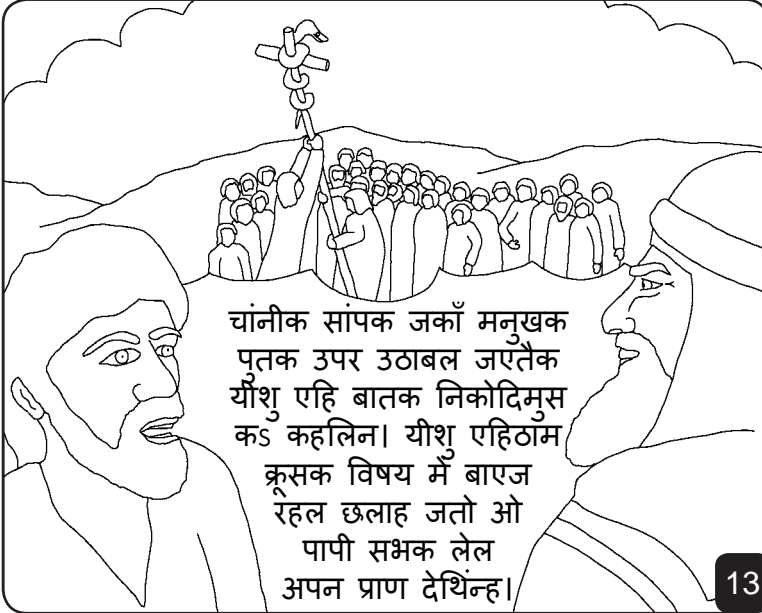 चांनीक सांपक जकाँ मनुखक
पुतक उपर उठाबल जएतैक
यीशु एहि बातक निकोदिमुस
कऽ कहलिन। यीशु एहिठाम
क्रूसक विषय में बाएज
रहल छलाह जतो ओ
पापी सभक लेल
अपन प्राण देथिंन्ह।
13